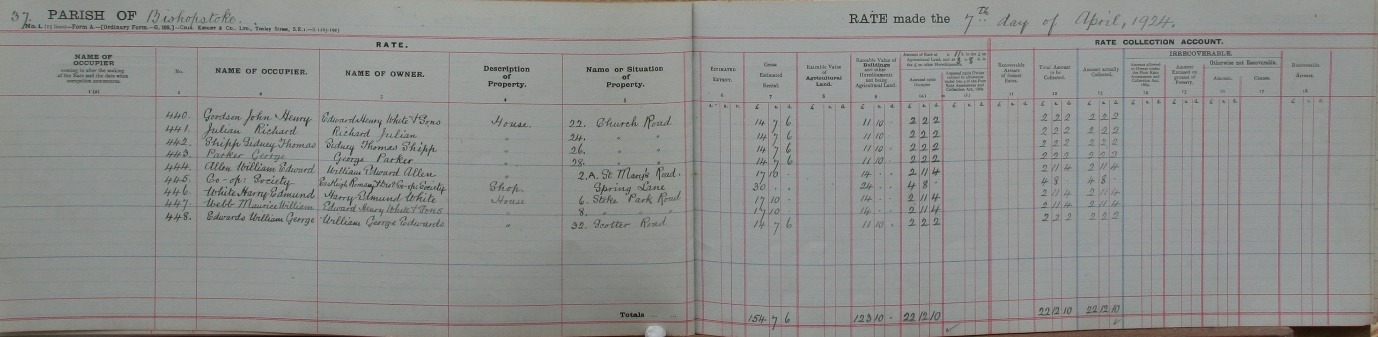 37. PARISH OF Bishopstoke.
RATE made the 7th day of April, 1924.
RATE.
RATE COLLECTION ACCOUNT.
IRRECOVERABLE.
NAME OF OCCUPIER
No.
NAME OF OCCUPIER.
NAME OF OWNER.
Description of Property.
Name or Situation of Property.
ESTIMATED EXTENT.
Gross Estimated Rental.
Rateable Value of Agricultural Land.
Rateable Value of Buildings and other Hereditaments not being Agricultural Land.
Recoverable Arrears of former Rates.
Total Amount to be Collected.
Amount actually Collected.
Otherwise not Recoverable.
Amount.
Causes.
Recoverable Arrears.
440. Goodson John Henry Edward Henry White & Sons House. 22. Church Road 14 7 6 11 10 - 2 2 2 2 2 2 2 2 2
441. Julian Richard Richard Julian " 24. " " 14 7 6 11 10 - 2 2 2 2 2 2 2 2 2
442. Shipp Sidney Thomas Sidney Thomas Shipp " 26. " " 14 7 6 11 10 - 2 2 2 2 2 2 2 2 2
443. Parker George George Parker " 28. " " 14 7 6 11 10 - 2 2 2 2 2 2 2 2 2
444. Allen William Edward William Edward Allen " 2.A. St Mary's Road. 17 10 - 14 - - 2 11 4 2 11 4 2 11 4
445. Co-op: Society Co-op: Society Shop. Spring Lane 30 - - 24 - - 4 8 - 4 8 - 4 8 -
446. White Harry Edmund Harry Edmund White House 6. Stoke Park Road 17 10 - 14 - - 2 11 4 2 11 4 2 11 4
447. Webb Maurice William Edward Henry White & Sons " 8. " " " 17 10 - 14 - - 2 11 4 2 11 4 2 11 4
448. Edwards William George William George Edwards " 32. Scotter Road 14 7 6 11 10 - 2 2 2 2 2 2 2 2 2
Totals 154 7 6 123 10 - 22 12 10 22 12 10 22 12 10